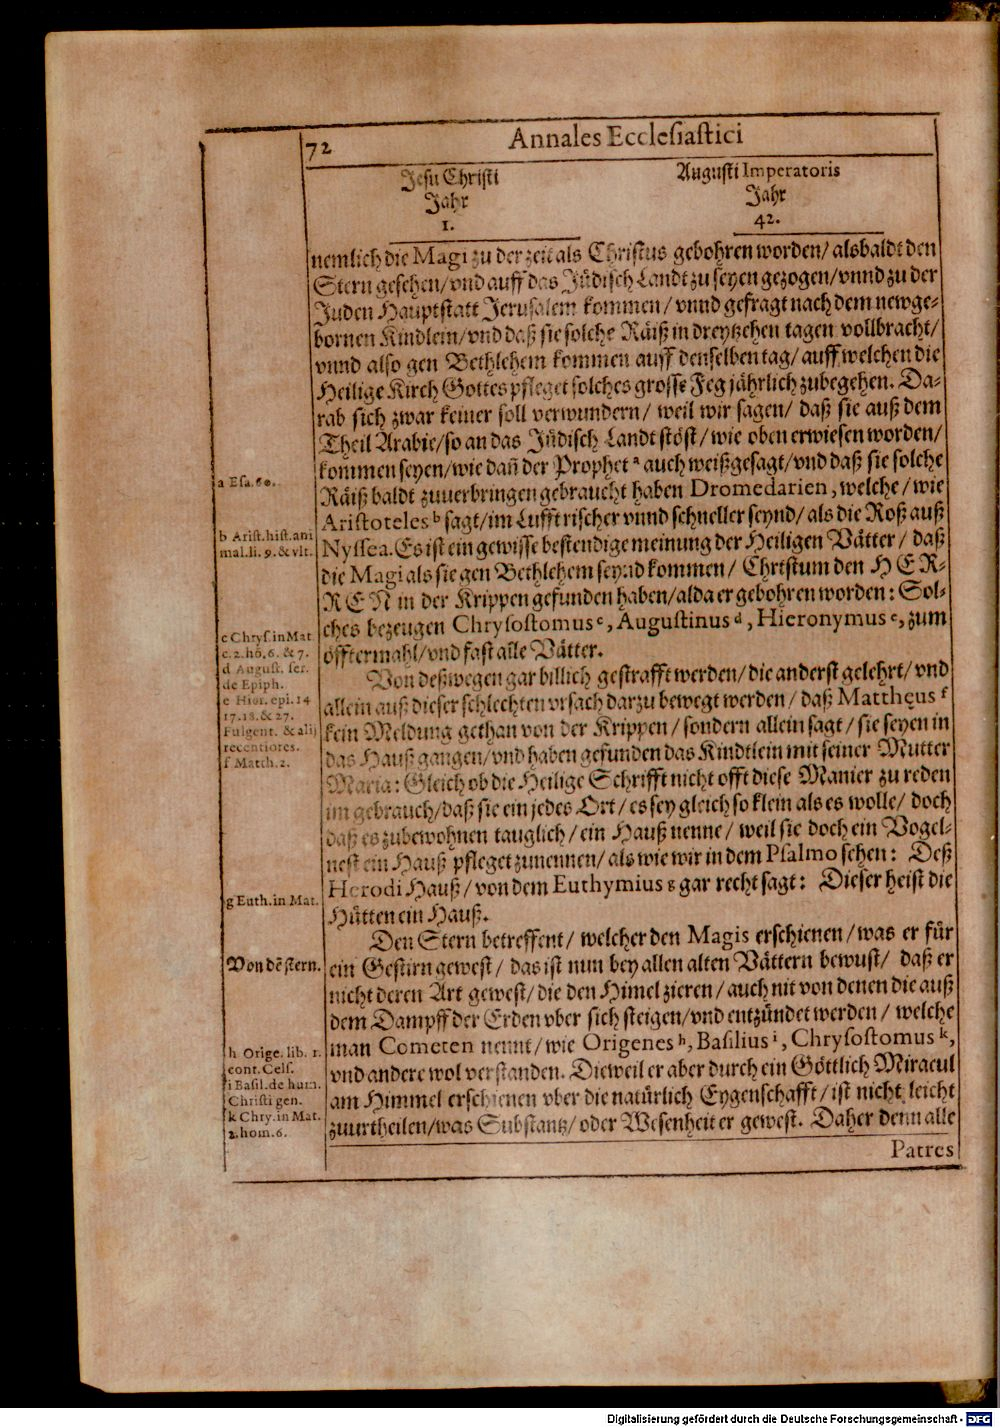 72
Annales Ecclesiastici
Jesu Christi
Jahr
1.
Augusti Imperatoris
Jahr
42.
nemlich die Magi zu der zeit als Christus gebohren worden/ alsbaldt den
Stern gesehen/ vnd auff das Jüdisch Landt zu seyen gezogen/ vnnd zu der
Juden Hauptstatt Jerusalem kommen/ vnnd gefragt nach dem newge-
bornen Kindlein/ vnd daß sie solche Räiß in dreytzehen tagen vollbracht/
vnnd also gen Bethlehem kommen auff denselben tag/ auff welchen die
Heilige Kirch Gottes pfleget solches grosse Feg jährlich zubegehen. Da-
rab sich zwar keiner soll verwundern/ weil wir sagen/ daß sie auß dem
Theil Arabie/ so an das Jüdisch Landt stöst/ wie oben erwiesen worden/
kommen seyen/ wie dañ der Prophet a auch weißgesagt/ vnd daß sie solche
Räiß baldt zuuerbringen gebraucht haben Dromedarien, welche/ wie
Aristoteles b sagt/ im Lufft rischer vnnd schneller seynd/ als die Roß auß
Nyssea. Es ist ein gewisse bestendige meinung der Heiligen Vätter/ daß
die Magi als sie gen Bethlehem seynd kommen/ Christum den HER-
REN in der Krippen gefunden haben/ alda er gebohren worden: Sol-
ches bezeugen Chrysostomus c, Augustinus d, Hieronymus e, zum
öfftermahl/ vnd fast alle Vätter.
Von deßwegen gar billich gestrafft werden/ die anderst gelehrt/ vnd
allein auß dieser schlechten vrsach darzu bewegt werden/ daß Matthęus f
kein Meldung gethan von der Krippen/ sondern allein sagt/ sie seyen in
das Hauß gangen/ vnd haben gefunden das Kindtlein mit seiner Mutter
Maria: Gleich ob die Heilige Schrifft nicht offt diese Manier zu reden
im gebrauch/ daß sie ein jedes Ort/ es sey gleich so klein als es wolle/ doch
daß es zubewohnen tauglich/ ein Hauß nenne/ weil sie doch ein Vogel-
nest ein Hauß pfleget zunennen/ als wie wir in dem Psalmo sehen: Deß
Herodi Hauß/ von dem Euthymius g gar recht sagt: Dieser heist die
Hütten ein Hauß.
Den Stern betreffent/ welcher den Magis erschienen/ was er für
ein Gestirn gewest/ das ist nun bey allen alten Vättern bewust/ daß er
nicht deren Art gewest/ die den Himel zieren/ auch nit von denen die auß
dem Dampff der Erden vber sich steigen/ vnd entzündet werden/ welche
man Cometen nennt/ wie Origenes h, Basilius i, Chrysostomus k,
vnd andere wol verstanden. Dieweil er aber durch ein Göttlich Miracul
am Himmel erschienen vber die natürlich Eygenschafft/ ist nicht leicht
zuurtheilen/ was Substantz/ oder Wesenheit er gewest. Daher denn alle
Patres
a Esa. 60.
b Arist. hist. ani
mal. li. 9. & vlt.
c Chrys. in Mat
c. 2. hõ. 6. & 7.
d August. ser.
de Epiph.
e Hier. epi. 14
17. 18. & 27.
Fulgent. & alij
recentiores.
f Matth. 2.
g Euth. in Mat.
Von dẽ stern.
h Orige. lib. 1.
cont. Cels.
i Basil. de hum.
Christi gen.
k Chry. in Mat.
2. hom. 6.
Digitalisierung gefördert durch die Deutsche Forschungsgemeinschaft - DFG